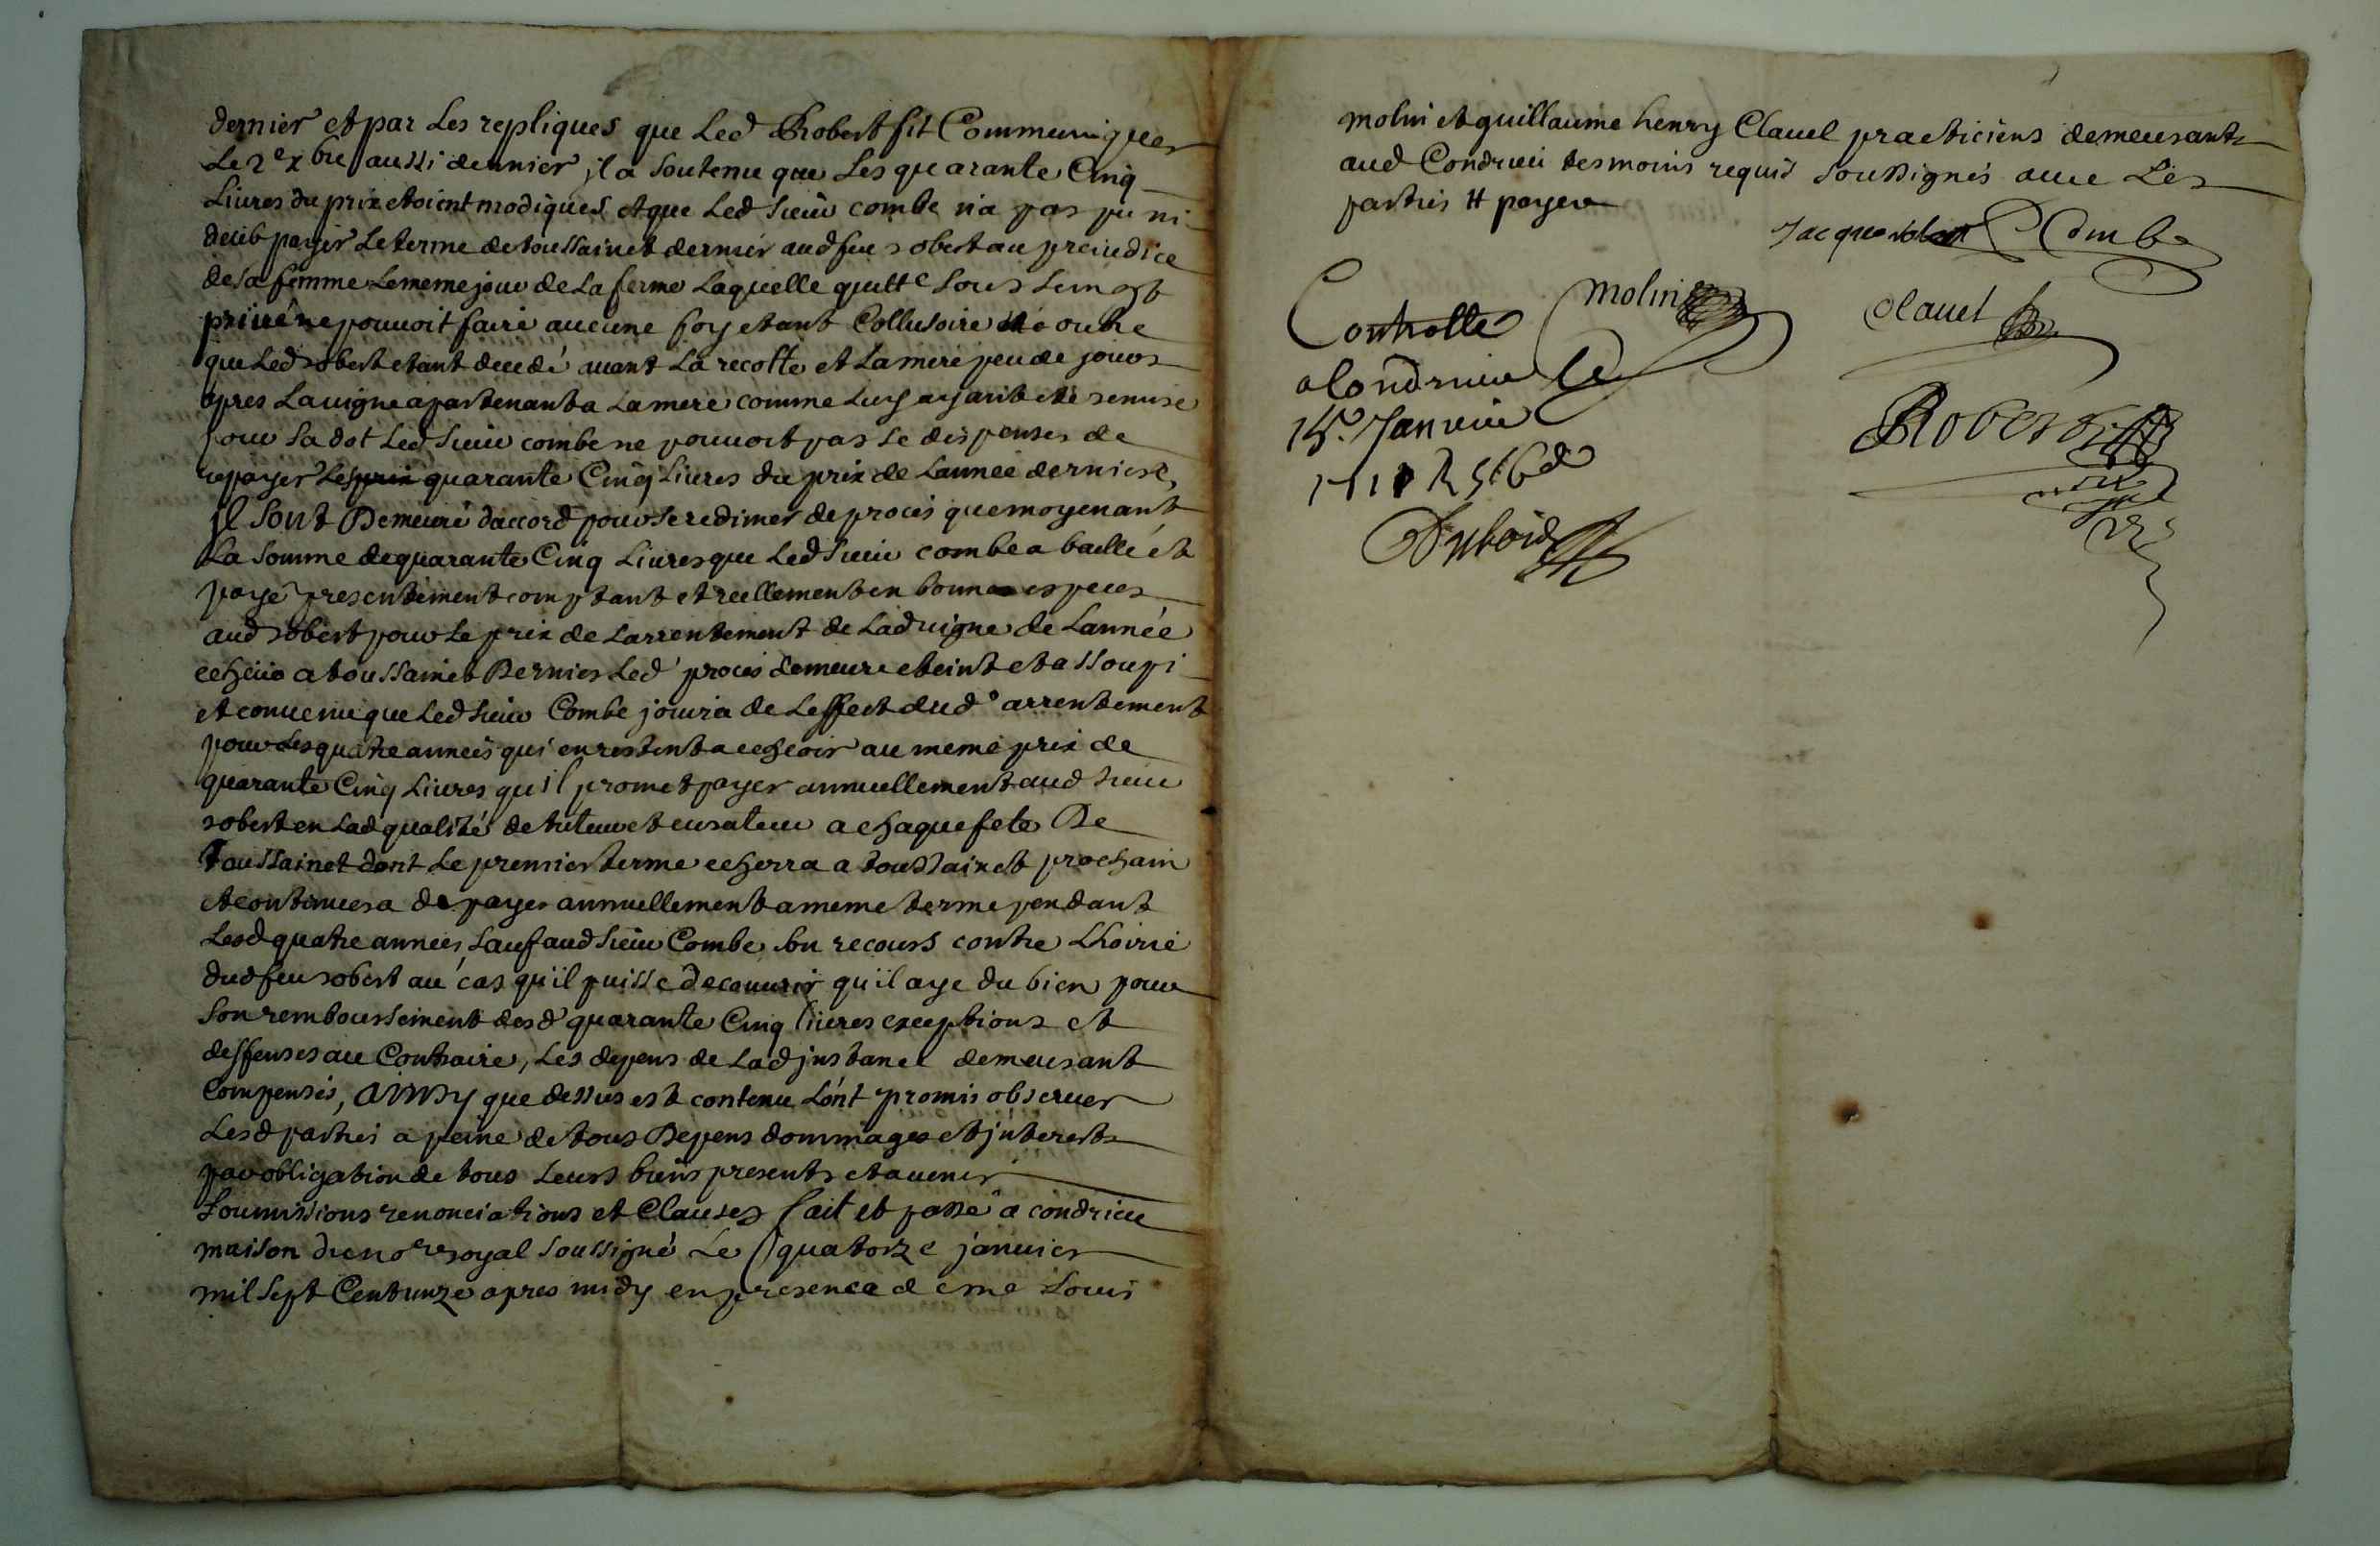 dernier et par les repliques que led Robert fit Communiquer
le 2e xbre aussi dernier, il a soutenu que les quarante Cinq
livres du prix etoient modiques et que led sieur combe n'a pas pu ni
deub payer le terme de toussainct dernier aud feu robert au preiudice
de sa femme le meme jour de la ferme laquelle quitt.e sous seing
privé ne pouvoit faire aucune foy etant Collusoire outre
que led robert etant decedé avant la recolte et la mere peu de jours
apres la vigne apartenant a la mere comme luy ayant eté remise
pour sa dot led sieur combe ne pouvoit pas se dispenser de
repayer les quarante Cinq livres du prix de l'année derniere,
il sont Demeuré d'accord pour se redimer de proces que moyenant
la somme de quarante Cinq livres que led sieur combe a baillé et
payé presentement comptant et reellement en bonnes especes
aud robert pour le prix de l'arrentement de lad vigne de l'année
echeue a toussainct Dernier led proces demeure eteint et assoupi
et convenu que led sieur Combe jouira de l'effect dud arrentement
pour les quatre années qui en restent a echeoir au meme prix de
quarante Cinq livres qu'il promet payer annuellement aud sieur
robert en lad qualité de tuteur et curateur a chaque fete De
Toussainct dont le premier terme echerra a toussainct prochain
et continuera de payer annuellement a meme terme pendant
lesd quatre années, sauf aud sieur Combe son recours contre l'hoirie
dud feu robert au cas qu'il puisse decouvrir qu'il aye du bien pour
son remboursement desd quarante Cinq livres exceptions et
deffenses au Contraire, les depens de lad jnstance demeurant
Compensés, Ainsy que dessus est contenu l'ont promis observer
lesd parties a peine de tous Depens dommages et jnterests
par obligation de tous leurs biens presents et avenir
soumissions renonciations et Clauses fait et passé a condrieu
maison du nore royal soussigné le quatorze janvier
mil sept Cent unze apres midy en presence de me Louis
molin et guillaume henry Clavel practiciens demeurants
aud Condrieu tesmoins requis soussignés avec les
parties # payera
Jacque Combe
molin
Clavel
Controllé
a Condrieu le
15. Janvier
1711 R
Robert
Dubois